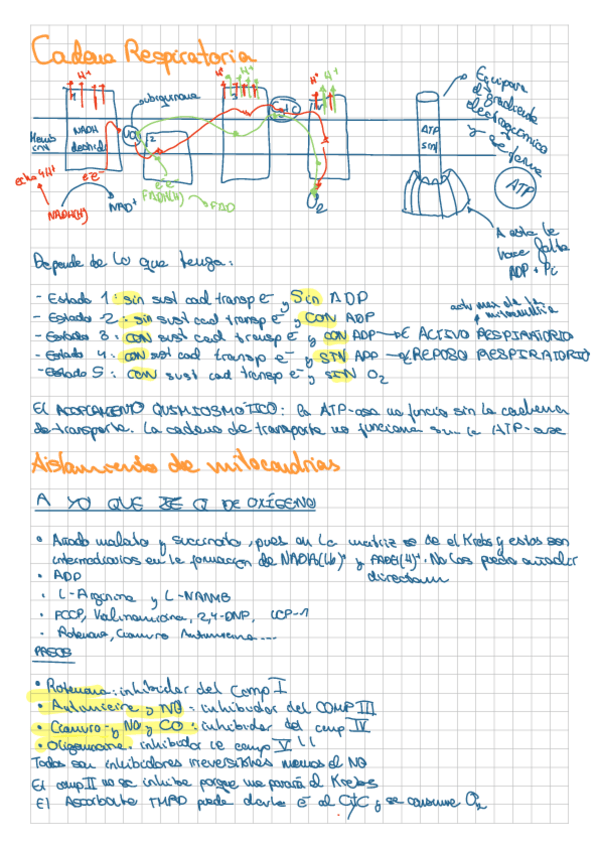 Cadena Respiratoria
H+
H+
H+
H+
H+
H+
ubiquinona
Equipara el gradiente electroquímico y se forma ATP
Memb
NADH deshid
UQ
Cyt C
IV
ATP sint
echa 4H+
e-e-
NADH(H)
NAD+
e-e-
FADH(H)
FAD
O2
A esta le hace falta ADP + Pi
Depende de lo que tenga:
- Estado 1: sin sust cad transp e- y Sin ADP
- Estado 2: sin sust cad transp e- y CON ADP
- Estado 3: CON sust cad transp e- y CON ADP → E ACTIVO RESPIRATORIO
- Estado 4: CON sust cad transp e- y SIN ADP → REPOSO RESPIRATORIO
- Estado 5: CON sust cad transp e- y SIN O2
EL ACOPLAMIENTO QUIMIOSMÓTICO: La ATP-asa no funcio sin la cadena
de transporte. La cadena de transporte no funciona sin la ATP-asa
Aislamiento de mitocondrias
A YO QUE SE Q DE OXÍGENO
• Añado malato y succinato, pues en la matriz se da el Krebs y estos son
intermediarios en la formación de NADH(H)+ y FADH(H)+. No los puedo añadir
directam
• ADP
• L-Arginina y L-NAME
• FCCP, Valinomicina, 2,4-DNP, UCP-1
• Rotenona, Cianuro Antimicina....
PASOS
• Rotenona: inhibidor del Comp I
• Antimicina y NO: inhibidor del COMP III
• Cianuro y NO y CO: inhibidor del cmp IV
• Oligomicina: inhibidor de comp V
Todos son inhibidores irreversibles menos el NO
El comp II no se inhibe porque me pararía el Krebs
El Ascorbato TMPD puede darle e- al CytC y se consume O2